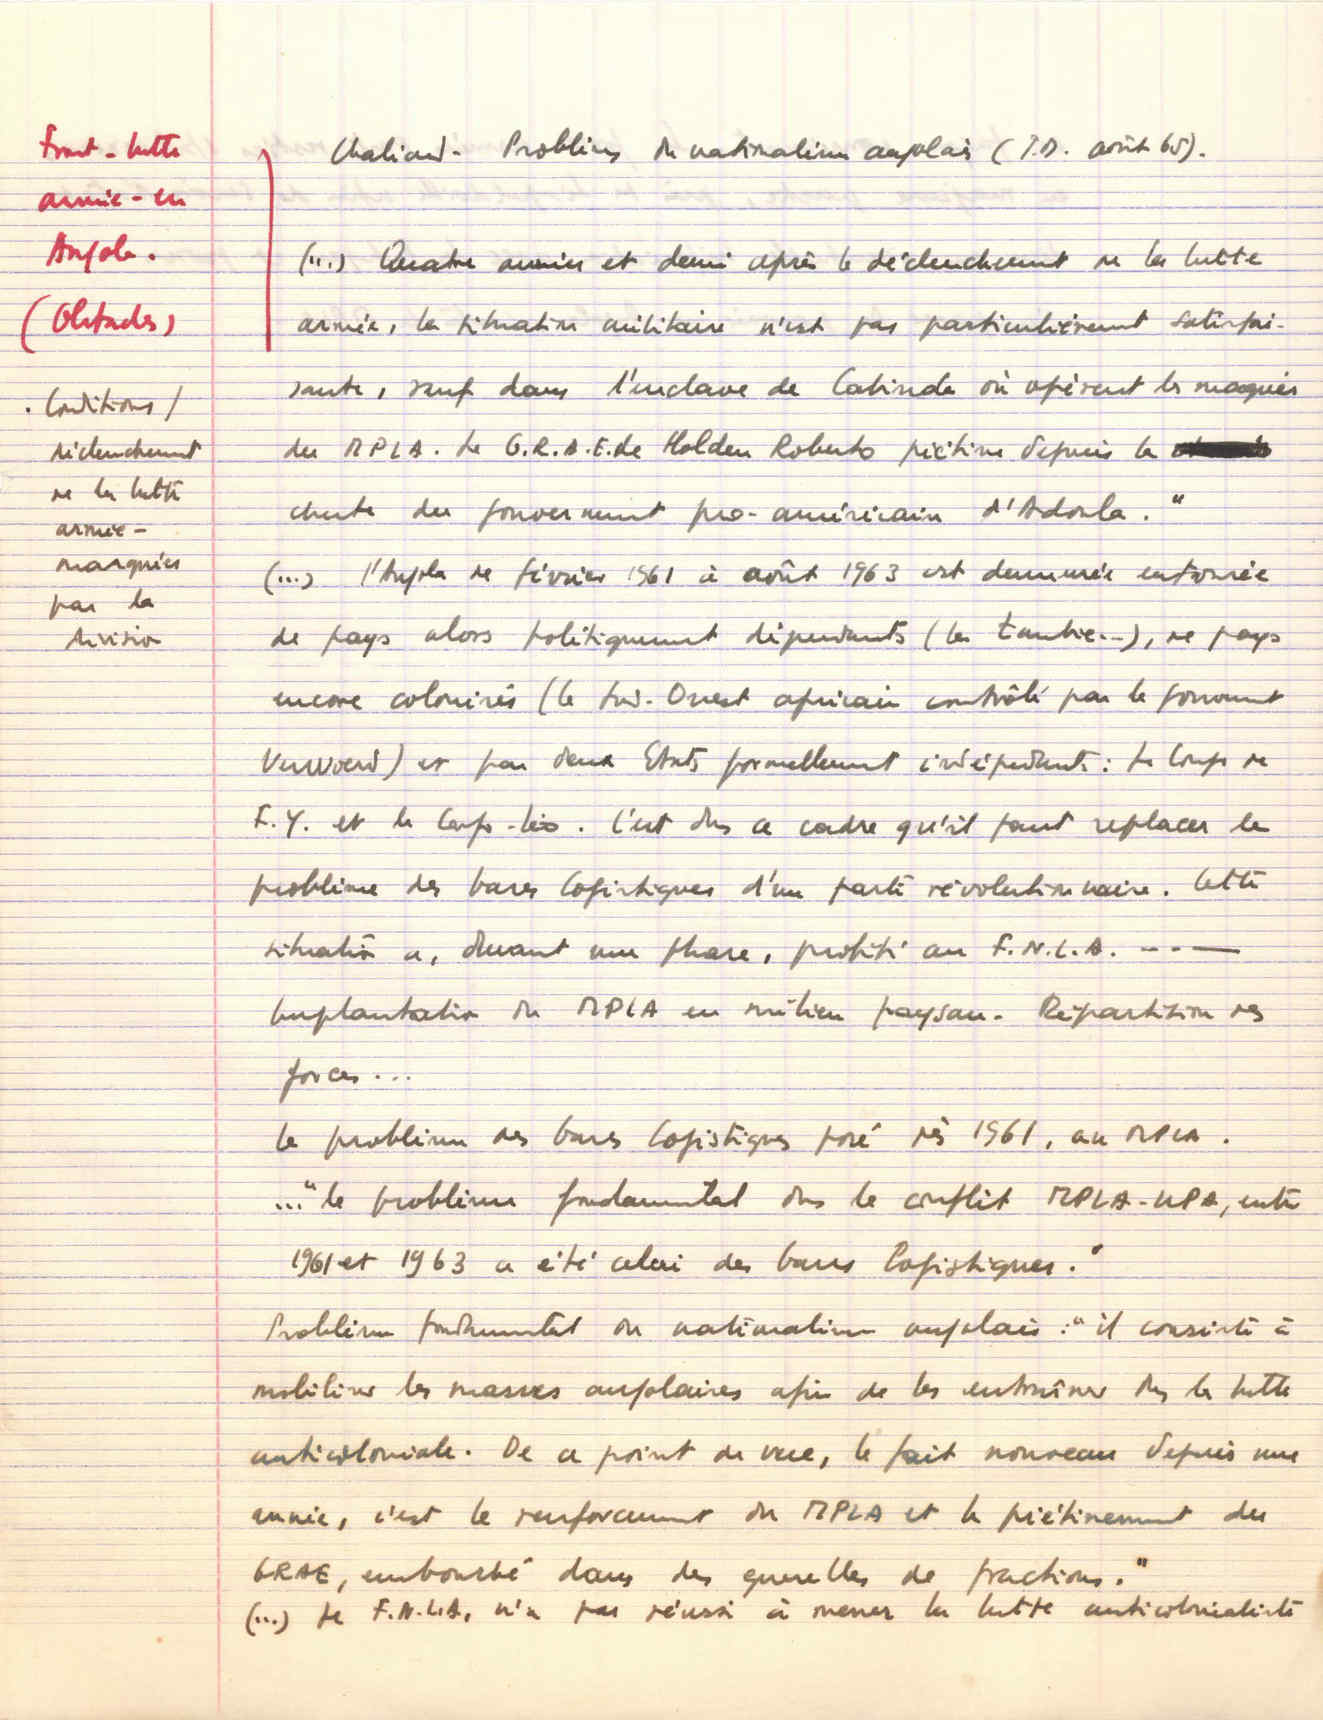 Front - lutte
armée - en
Angola.
(Obstacles)
. Conditions /
déclenchement
de la lutte
armée -
marquées
par la
division
Chaliand - Problèmes du nationalisme angolais (T.D. août 65).
(...) Quatre années et demi après le déclenchement de la lutte
armée, la situation militaire n'est pas particulièrement satisfai-
sante, sauf dans l'enclave de Cabinda où opèrent les maquis
du MPLA. Le G.R.A.E. de Holden Roberto piétine depuis la
chute du gouvernement pro-américain d'Adoula."
(...) l'Angola de février 1961 à août 1963 est demeurée entourée
de pays alors politiquement dépendants (la Zambie...), de pays
encore colonisés (le Sud-Ouest africain contrôlé par le gouvernement
Verwoerd) et par deux Etats formellement indépendants : le Congo de
F.Y. et le Congo-Léo. C'est dans ce cadre qu'il faut replacer le
problème des bases logistiques d'un parti révolutionnaire. Cette
situation a, durant une phase, profité au F.N.L.A. ---
Implantation du MPLA en milieu paysan - Répartition des
forces...
Le problème des bases logistiques posé dès 1961, au MPLA.
..."le problème fondamental dans le conflit MPLA-UPA, entre
1961 et 1963 a été celui des bases logistiques."
Problème fondamental du nationalisme angolais : "il consiste à
mobiliser les masses angolaises afin de les entraîner dans la lutte
anticoloniale. De ce point de vue, le fait nouveau depuis une
année, c'est le renforcement du MPLA et le piétinement du
GRAE, embourbé dans des querelles de fractions."
(...) Le F.N.L.A. n'a pas réussi à mener la lutte anticolonialiste